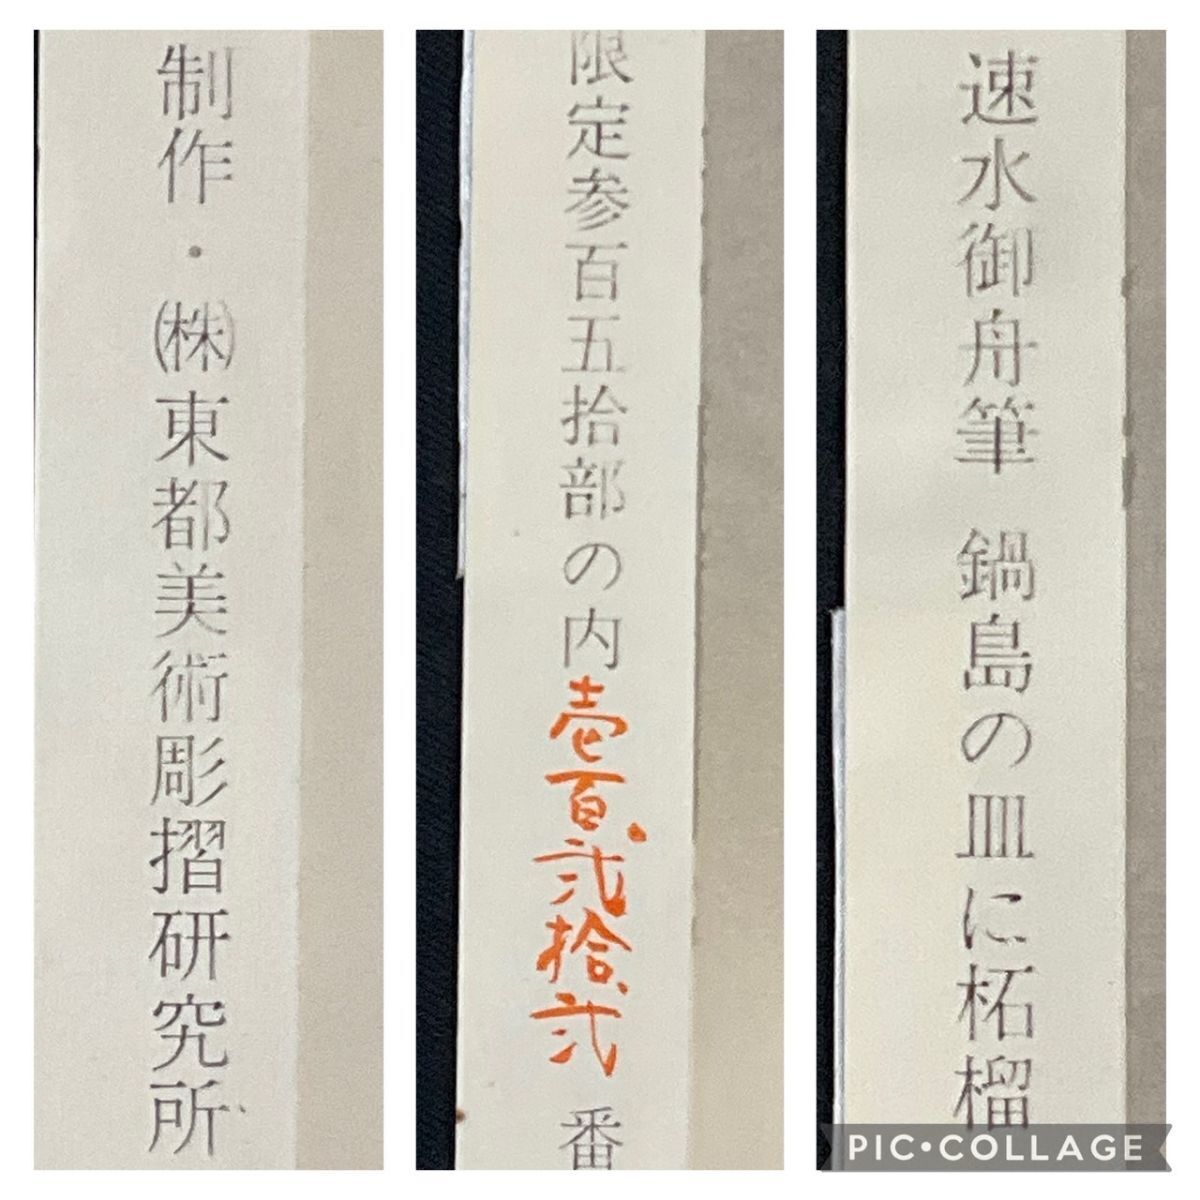 速水御舟筆 鍋島の皿に柘榴
限定参百五拾部の内壱百弐拾弐番
制作・㈱東都美術彫摺研究所
PIC•COLLAGE